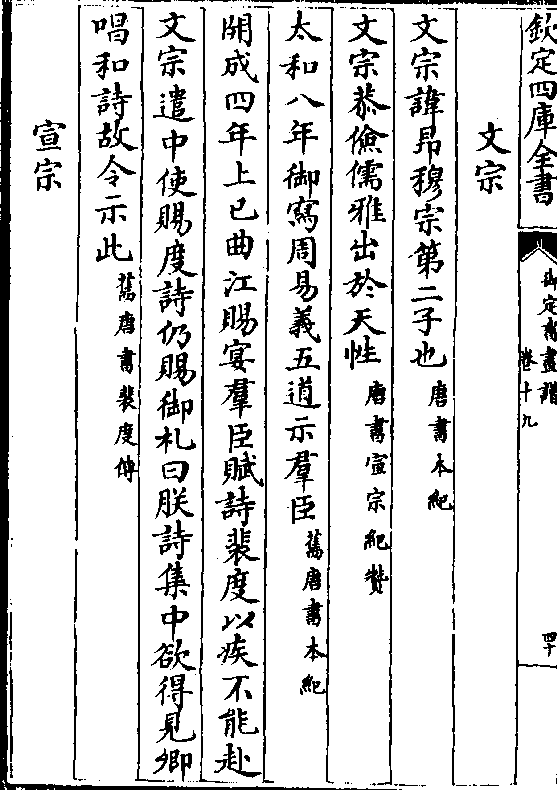 欽定四庫全書
御定書畫譜
卷十九
四十
文宗
文宗諱昻穆宗第二子也唐書本紀
文宗恭儉儒雅出於天性唐書宣宗紀贊
太和八年御寫周易義五道示羣臣舊唐書本紀
開成四年上巳曲江賜宴羣臣賦詩裴度以疾不能赴
文宗遣中使賜度詩仍賜御札曰朕詩集中欲得見卿
唱和詩故令示此舊唐書裴度傳
宣宗